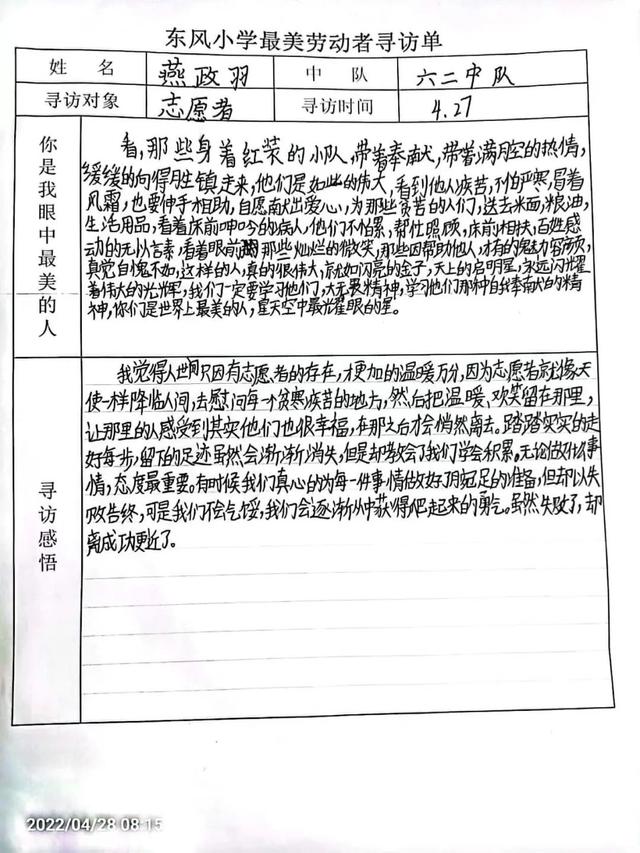 东风小学最美劳动者寻访单
姓 名 燕政羽 中 队 六二中队
寻访对象 志愿者 寻访时间 4.27
你是我眼中最美的人
看,那些身着红装的小队,带着奉献,带着满腔的热情,
缓缓的向得胜镇走来,他们是如此的伟大,看到他人疾苦,不怕严寒,冒着
风霜,也要伸手相助,自愿献出爱心,为那些贫苦的人们,送去米面,粮油,
生活用品,看着床前呻吟的病人,他们不怕累,帮忙照顾,床前相扶,百姓感
动的无以言表,看着眼前那些灿烂的微笑,那些因帮助他人,才有的魅力容颜,
真觉自愧不如,这样的人,真的很伟大,就如闪亮的金子,天上的启明星,永远闪耀
着伟大的光辉,我们一定要学习他们,大无畏精神,学习他们那种自我奉献的精
神,你们是世界上最美的人,星天空中最光耀眼的星。
寻访感悟
我觉得人世间只因有志愿者的存在,才更加的温暖万分,因为志愿者就像天
使一样降临人间,去慰问每一个贫寒疾苦的地方,然后把温暖、欢笑留在那里,
让那里的人感受到其实他们也很幸福,在那之后才会悄然离去。踏踏实实的走
好每步,留下的足迹虽然会渐渐消失,但是却教会了我们学会积累。无论做什么事
情,态度最重要。有时候我们真心的为每一件事情做好了充足的准备,但却以失
败告终,可是我们不会气馁,我们会逐渐从中获得爬起来的勇气。虽然失败了,却
离成功更近了。
2022/04/28 08:15